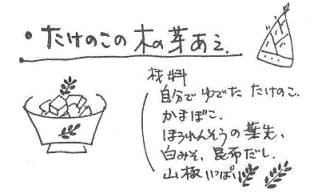 ・たけのこの木の芽あえ.
材料
自分でゆでた たけのこ.
かまぼこ.
ほうれんそうの葉先、
白みそ、昆布だし.
山椒いっぱい